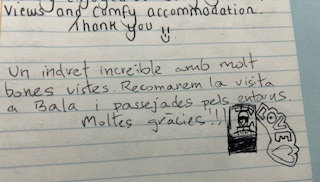 views and comfy accommodation.
Thank you
Un indret increïble amb molt
bones vistes. Recomanem la visita
a Bala i passejades pels entorns.
Moltes gràcies!!!
LOVE